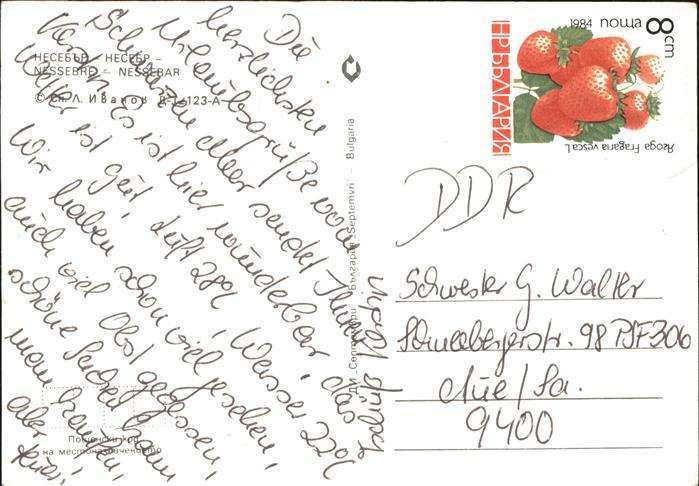 НЕСЕБЪР – НЕСЕБР –
NESSEBRE – NESSEBAR
© Сп. Л. Иванов Д-1-123-А
Die
herzlichsten
Urlaubsgrüße vom
Schwarzen Meer sendet Ihnen
Es ist hier wunderbar, das
Wetter ist gut, Luft 28°C, Wasser 22°C
Wir haben schon viel gesehen,
auch viel Obst gegessen,
schöne Sachen kann
man kaufen,
aber
Bulgaria
България „Septemvri“
Пощенски код
на местоназначението
8 cm
пощи 1984
НР БЪЛГАРИЯ
Ягода Fragaria vesca L.
DDR
Schwester G. Walter
Schneebergerstr. 98 PSF 306
Aue / Sa.
9400